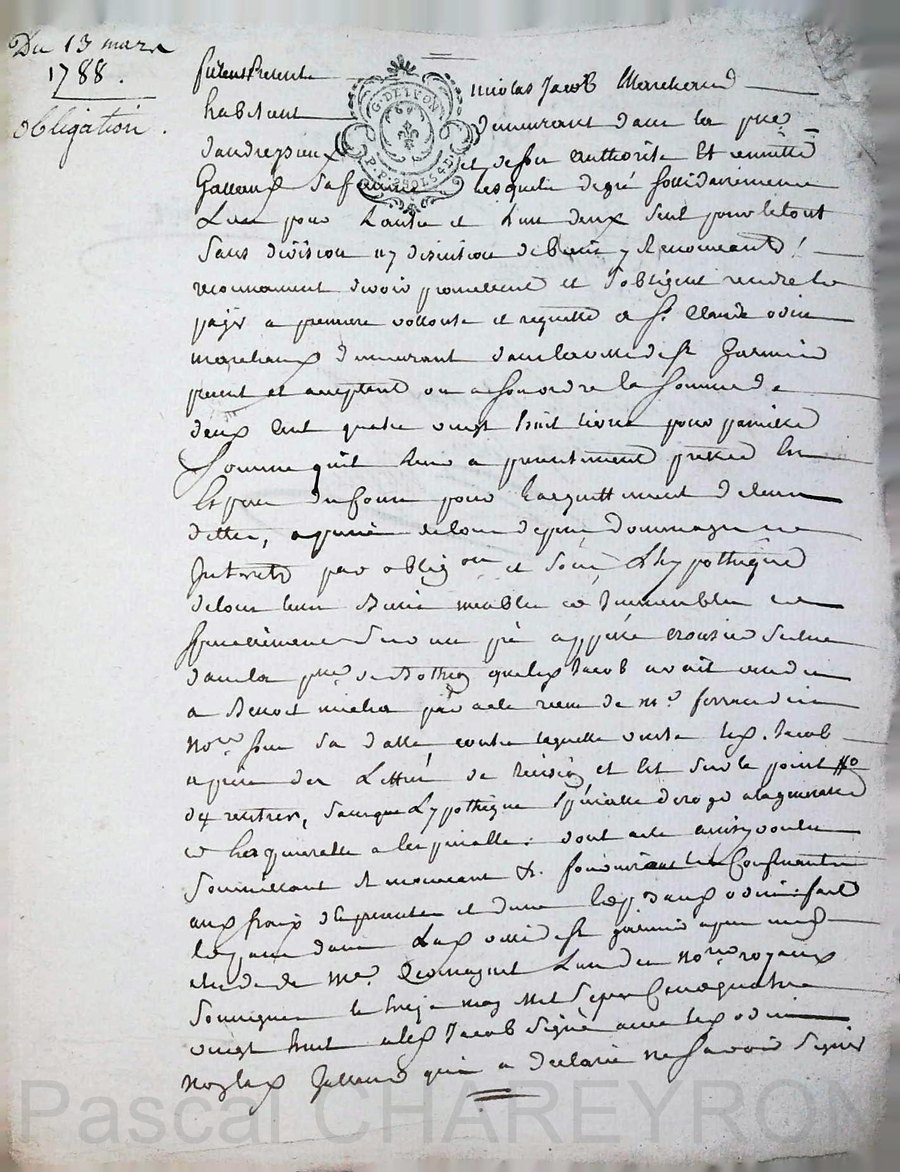 Du 13 mars
1788.
obligation.
G. DE LYON
furent Presents nicolas Jacob Marchand
habitant demeurant dans la psse
dandrezieux et de son authorité Et
Galland sa femme lesquels de gré sollidairement
Lun pour Lautre et Lun deux seul pour le tout
sans division ny discution de biens y Renonceant
reconnaissent devoir promettent et s'obligent rendre et
payer a premiere vollonté et requette a Sr. Claude odin
marchand demeurant dans la ville de St Garmier
present et acceptant ou a son ordre la somme de
deux Cent quatre vingt huit livres pour pareille
somme quil leur a presentement prettée
pour Lacquittement de leurs
dettes, a peine de tous depens dommages et
Interets par obligon et sous Lhypotheque
de tous leurs Biens meubles et Immeubles et
specialement sur un pré appellé situé
dans la psse de Bothéon que led Jacob avait vendu
a Benoit par acte recu de me.
nore sous sa datte, contre laquelle vente led. Jacob
a pris des Lettres de et Est sur le point
dy rentrer, sans que Lypotheque specialle deroge a la generalle
et La generalle a la specialle: dont acte ainsy voulu
soumettant Renonceant &. fourniront les Confessants
aux fraix des presentes et dune Exp. aud odin: fait
et passé dans Lad ville de St garmier apres midy
etude de Me. Lun des Nores royaux
soussignés le treize mars Mil Sept Cent quatre
vingt huit a led Jacob signé avec led odin
non lad Galland qui a declaré ne savoir signer
Pascal CHAREYRON